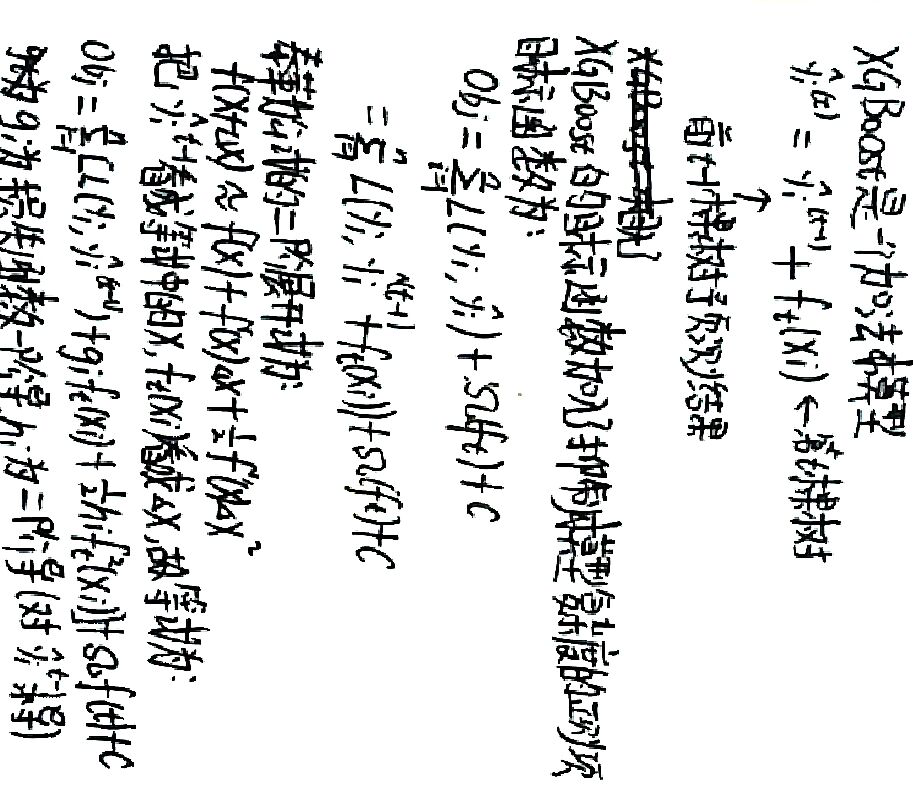 XGBoost是一个加法模型
ŷᵢ⁽ᵗ⁾ = ŷᵢ⁽ᵗ⁻¹⁾ + fₜ(xᵢ) ← 第t棵树
↑
前t-1棵树预测结果
XGBoost的目标函数加入了抑制模型复杂度的正则项
目标函数为:
Obj = Σᵢ₌₁ⁿ L(yᵢ, ŷᵢ) + Ω(fₜ) + C
= Σᵢ₌₁ⁿ L(yᵢ, ŷᵢ⁽ᵗ⁻¹⁾ + fₜ(xᵢ)) + Ω(fₜ) + C
泰勒公式的二阶展开式为:
f(x+Δx) ≈ f(x) + f'(x)Δx + ½f''(x)Δx²
把ŷᵢᵗ⁻¹看成等式中的x, fₜ(xᵢ)看成Δx, 故等式为:
Obj = Σᵢ₌₁ⁿ [L(yᵢ, ŷᵢ⁽ᵗ⁻¹⁾) + gᵢfₜ(xᵢ) + ½hᵢfₜ²(xᵢ)] + Ωf(t) + C
gᵢ为损失函数一阶导, hᵢ为二阶导(对ŷᵢᵗ⁻¹求导)